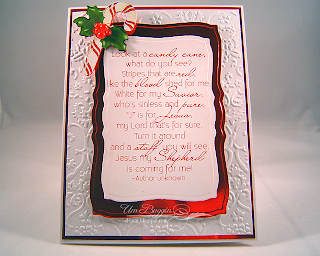 Look at a candy cane,
what do you see?
Stripes that are red,
like the blood shed for me.
White for my Savior,
who's sinless and pure.
"J" is for Jesus,
my Lord that's for sure.
Turn it around
and a staff you will see.
Jesus my Shepherd
is coming for me!
-Author unknown